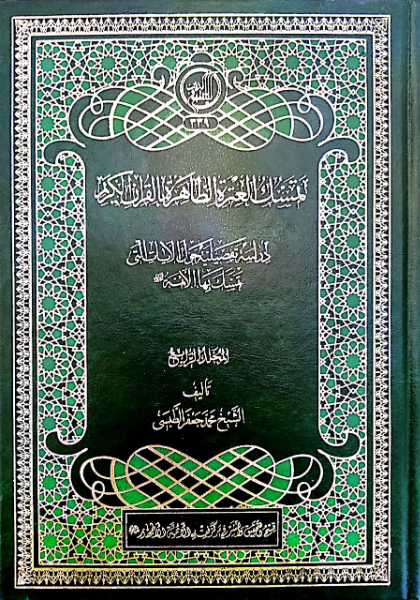 ٣٣٩
تمسك العترة الطاهرة بالقرآن الكريم
دراسة تفصيلية حول الآيات التي
تمسك بها الأئمة
المجلد الرابع
تأليف
الشيخ محمد جعفر الطبسي